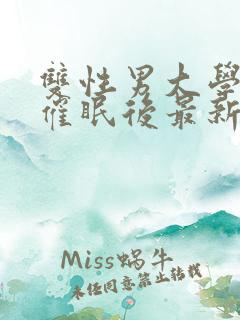 雙性男大學
催眠後最新
Miss蝸牛
未經同意禁止轉載